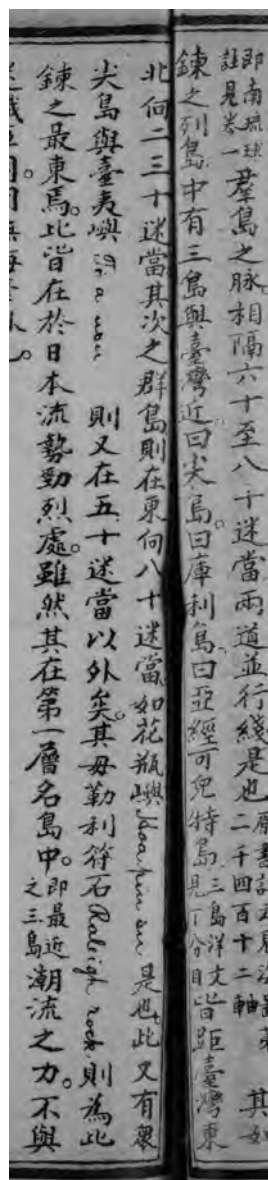 即南琉球
註見卷一
羣島之脉相隔六十至八十迷當兩道並行綫是也
二千四百十二軸
其如
鍊之列島中有三島與臺灣近曰尖島曰庫利島曰亞經可兒特島
三島洋文
見丁分目
皆距臺灣東
北向二三十迷當其次之群島則在東向八十迷當如花瓶嶼 Hoa pin su 是也此又有
尖島與臺夷嶼 Ti a usu 則又在五十迷當以外矣其毋勒利符石 Raleigh rock 則為此
鍊之最東焉。此皆在於日本流勢勁烈處。雖然其在第一層各島中。
即最近
之三島
潮流之力。不與